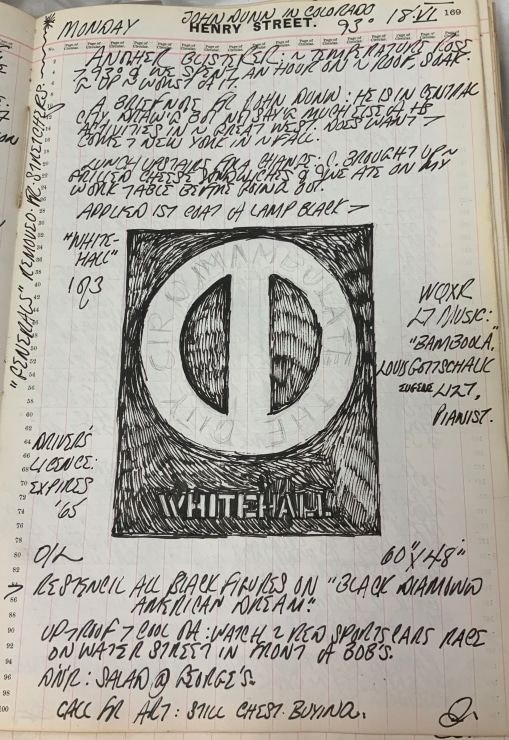 JOHN DUNN IN COLORADO
MONDAY HENRY STREET. 93° 18·VI 169
ANOTHER BLISTERER: TEMPERATURE ROSE
93° & WE SPENT AN HOUR ON ROOF, SOAK-
UP WORST OF IT.
A BRIEF NOTE FR JOHN DUNN: HE IS IN CENTRAL
CITY, BUT NOT SAY MUCH
ACTIVITIES IN GREAT WEST. DOES WANT
COME NEW YORK IN FALL.
LUNCH UPSTAIRS C. BROUGHT UP
GRILLED CHEESE SANDWICHES & WE ATE ON MY
WORK TABLE BEFORE GOING OUT.
APPLIED 1ST COAT OF LAMP BLACK
"WHITE-
HALL"
1 OF 3
CIRCUMAMBULATE THE CITY
WHITEHALL
"FENERALS" REMOVED FR. STRETCHERS.
WQXR
MUSIC:
"BAMBOOLA,"
LOUIS GOTTSCHALK
EUGENE LIZT,
PIANIST.
DRIVER'S
LICENCE:
EXPIRES
'65
O/L 60"X48"
RESTENCIL ALL BLACK FIGURES ON "BLACK DIAMOND
AMERICAN DREAM".
UP ROOF COOL : WATCH 2 RED SPORTSCARS RACE
ON WATER STREET IN FRONT OF BOB'S.
DIN'R: SALAD @ GEORGE'S.
CALL FR ART: STILL CHEST. BUYING.